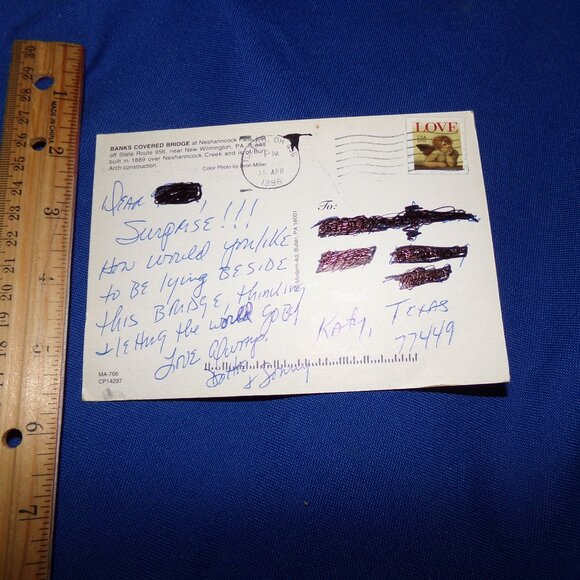 BANKS COVERED BRIDGE at Neshannock
off State Route 956, near New Wilmington, PA. It was
built in 1889 over Neshannock Creek and is of Burr
Arch construction.
Color Photo by Bron Miller
PM
15 APR
1996
LOVE
USA
DEAR
SURPRISE!!!
HOW WOULD YOU LIKE
TO BE lying BESIDE
this BRIDGE, thinking
+ letting the world GO BY
Love Always,
& Johnny
To:
Katy, TEXAS
77449
Modern-Ad, Butler, PA 16001
MA-766
CP14297
MADE IN CHINA
1
2
6
7